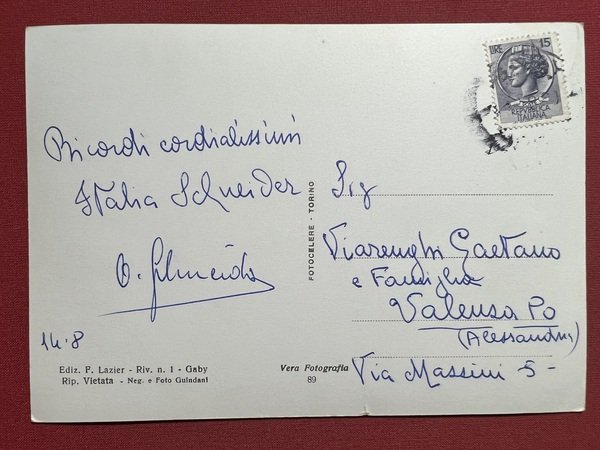 LIRE 15
REPVBBLICA
ITALIANA
Ricordi cordialissimi
Italia Schneider
14.8
FOTOCELERE - TORINO
Sig
Viarenghi Gaetano
e Famiglia
Valenza Po
(Alessandria)
Via Massini 5-
Ediz. F. Lazier - Riv. n. 1 - Gaby
Rip. Vietata - Neg. e Foto Guindani
Vera Fotografia
89